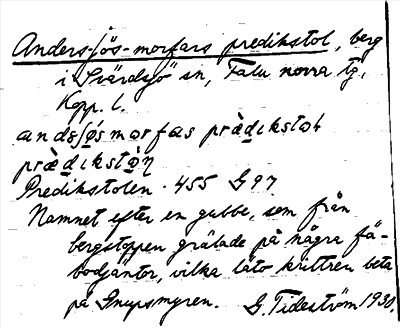 Anders-Jös-morfars predikstol, berg
i Svärdsjö sn, Falu norra tg,
Kopp. l.
predikstol
Predikstolen. 455 G 97
Namnet efter en gubbe, som från
bergstoppen grälade på några fä-
bodjäntor, vilka låto krittren beta
på Gnupsmyren. G. Tideström 1930.